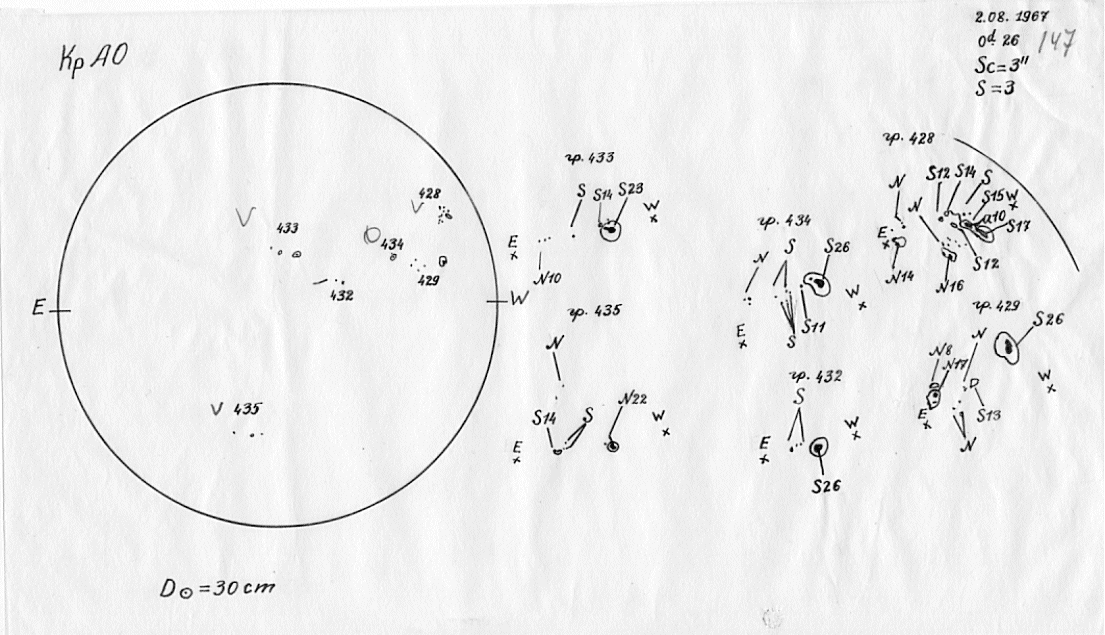 2.08. 1967
0d. 26 147
Sc=3"
S=3
Кр АО
E W
428
433
434
429
432
435
D⊙=30 cm
гр. 433
S S14 S23
W
E
N10
гр. 435
N
S14 S N22
W
E
гр. 434
N S S26
W
E
S11
S
гр. 432
S
W
E
S26
гр. 428
N S12 S14 S
N S15 W
α10
E S17
N14 S12
N16
гр. 429
N S26
N8
N17
W
E S13
N